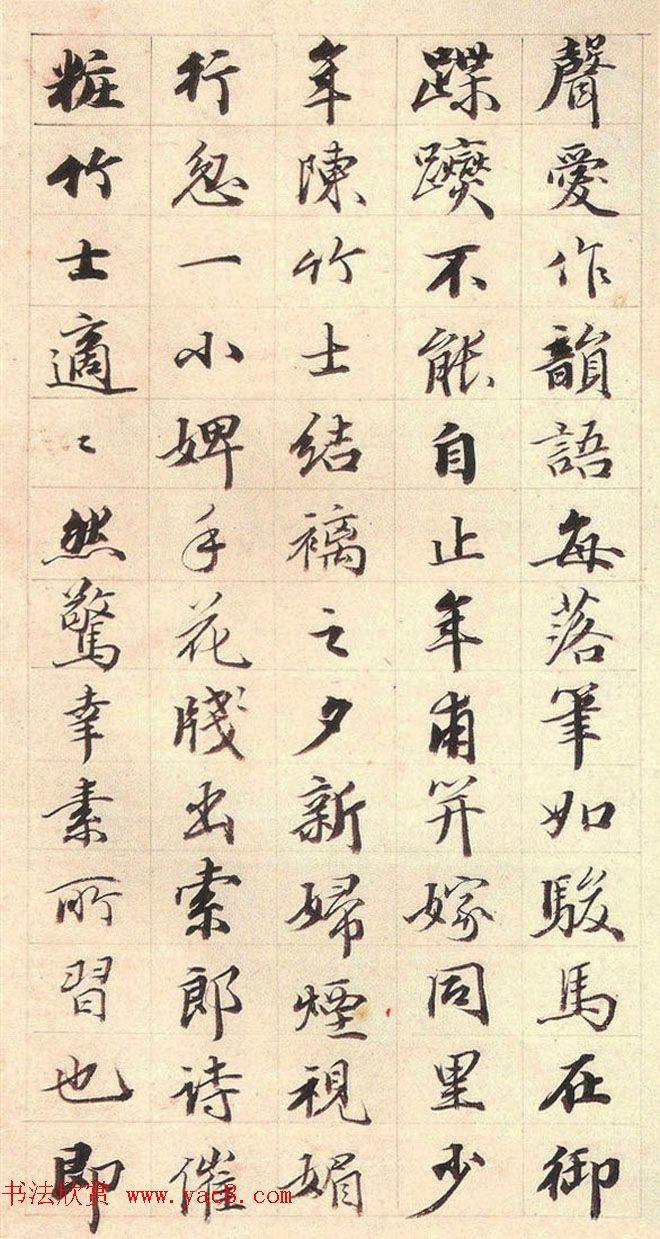 聲愛作韻語每落筆如駿馬在御
蹀躞不能自止年甫笄嫁同里少
年陳竹士結褵之夕新婦煙視媚
行忽一小婢手花牋出索郎詩催
粧竹士適〻然驚幸素所習也即
书法欣赏 www.yac8.com